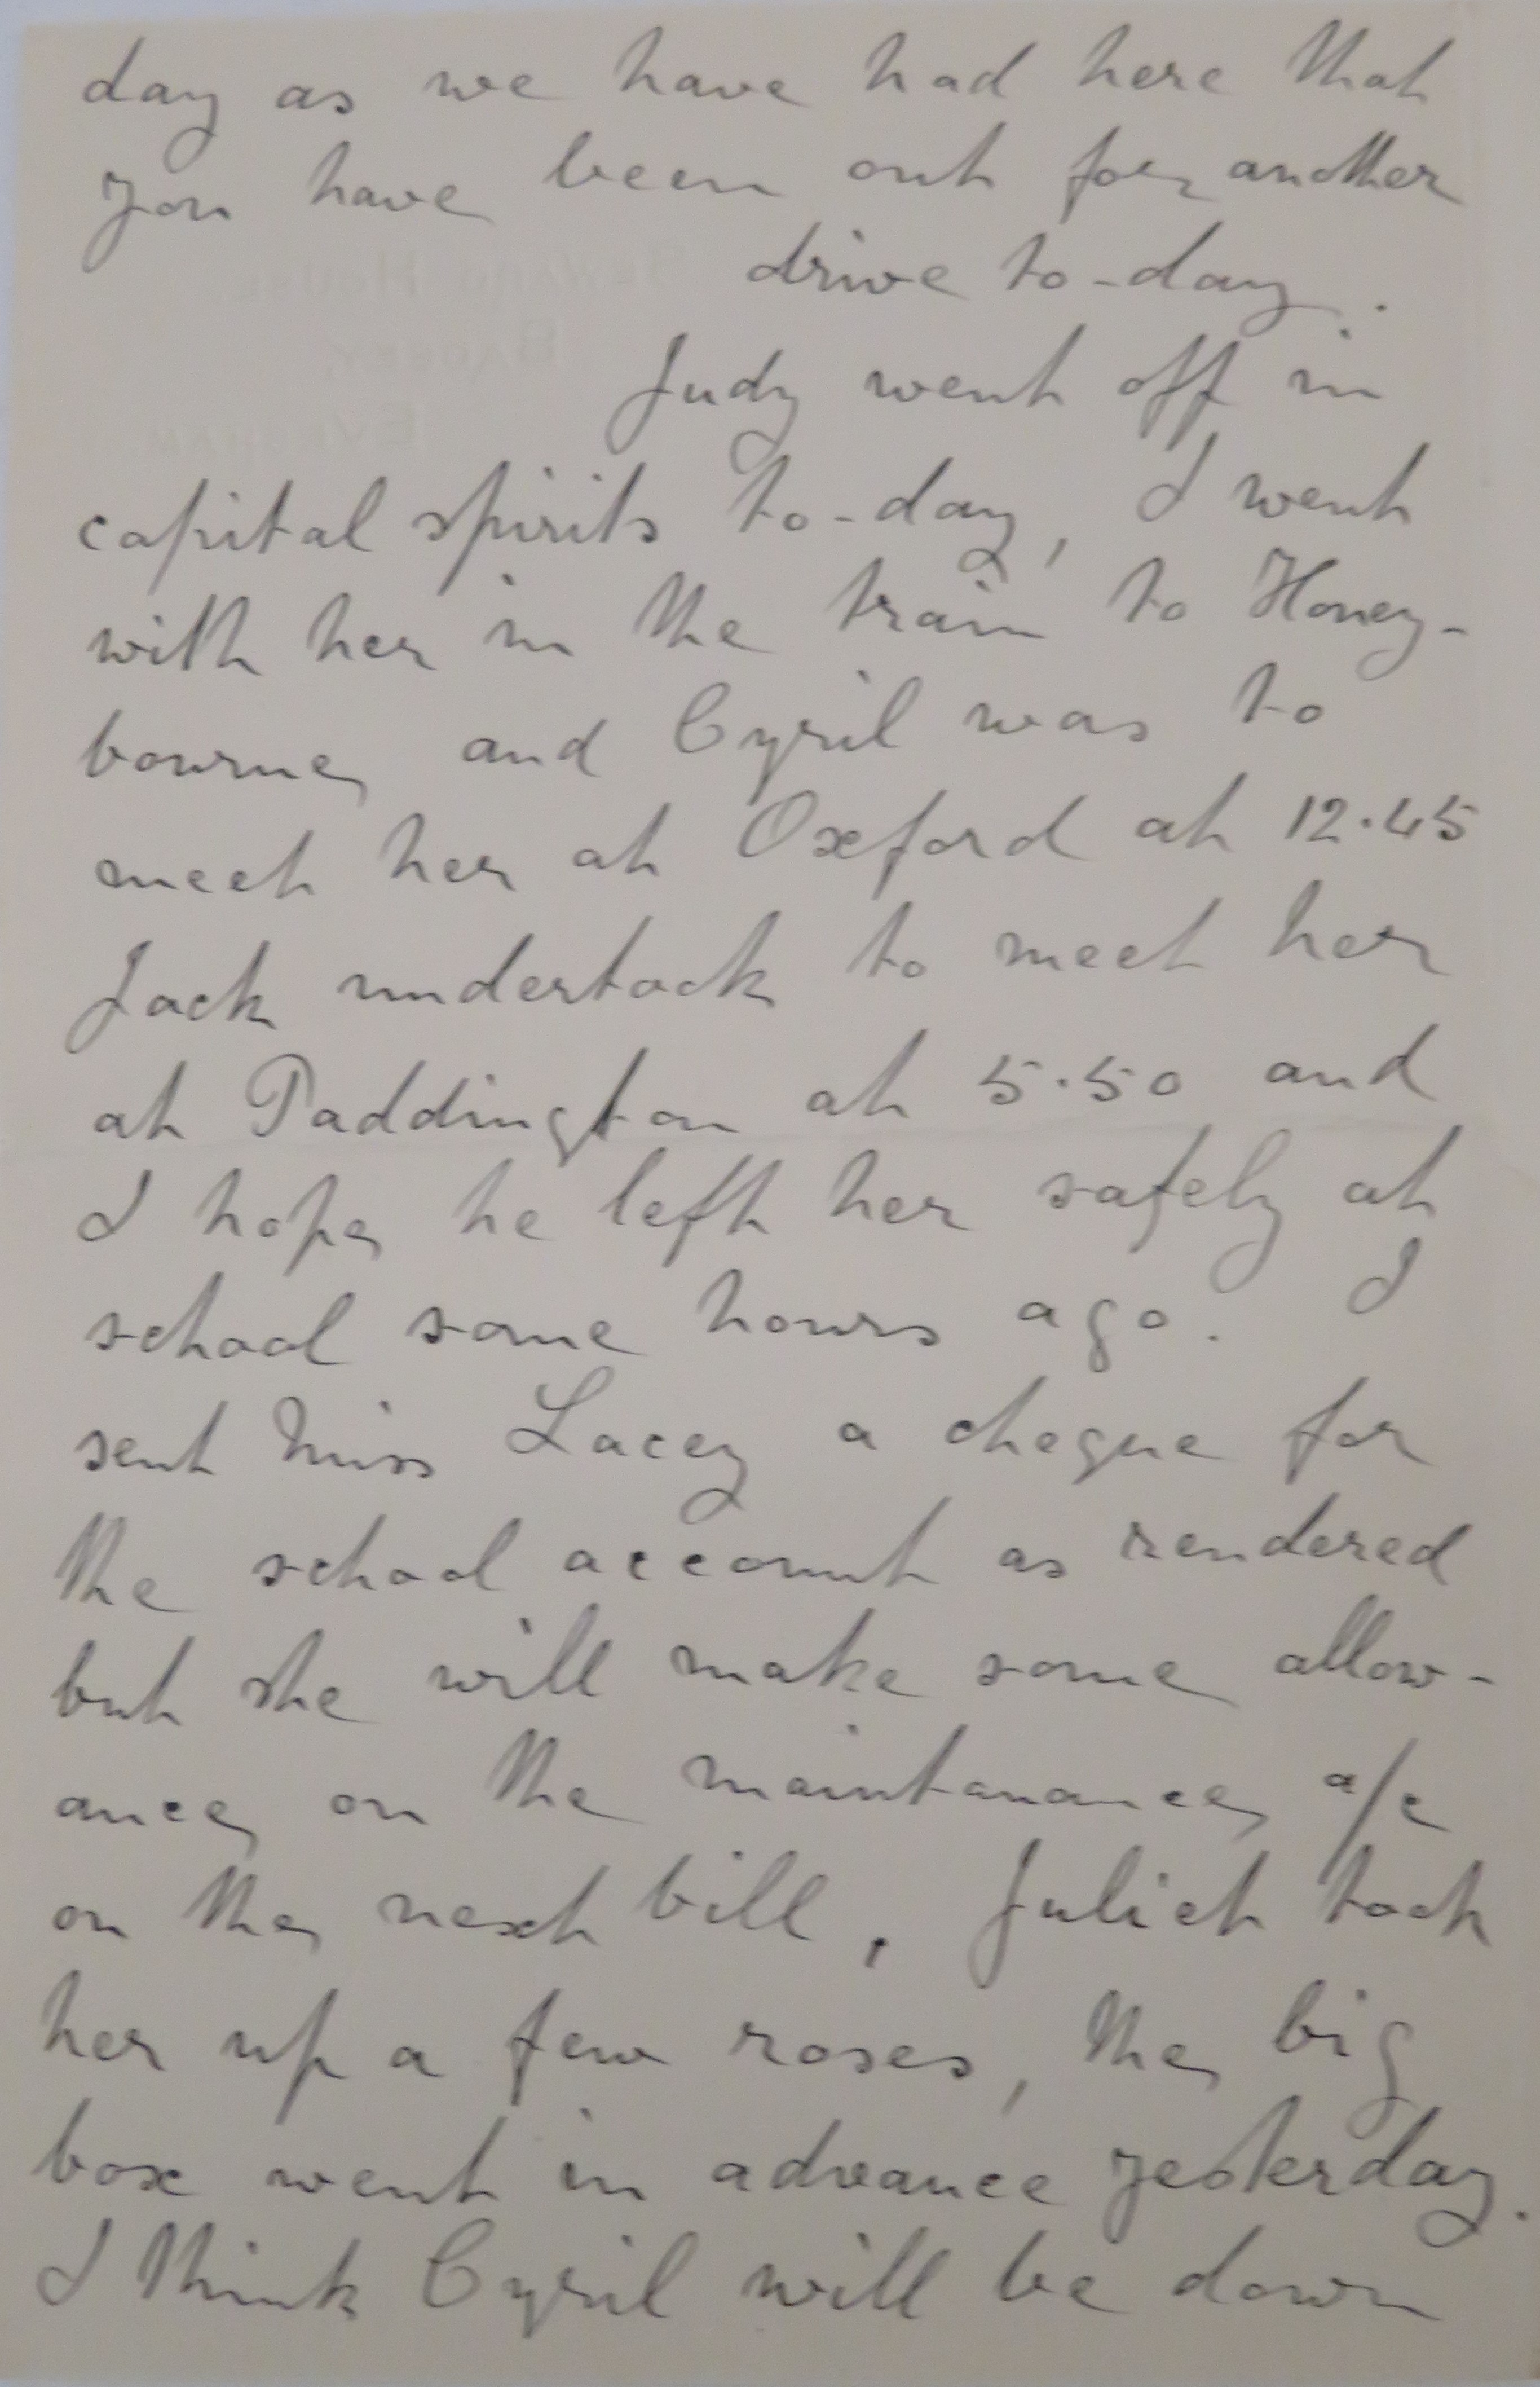 day as we have had here that
you have been out for another
drive to-day.
Judy went off in
capital spirits to-day, I went
with her in the train to Honey-
bourne and Cyril was to
meet her at Oxford at 12.45
Jack undertook to meet her
at Paddington at 5.50 and
I hope he left her safely at
school some hours ago. I
sent Miss Lacey a cheque for
the school account as rendered
but she will make some allow-
ance on the maintanance a/c
on the next bill. Juliet took
her up a few roses, the big
box went in advance yesterday.
I think Cyril will be down